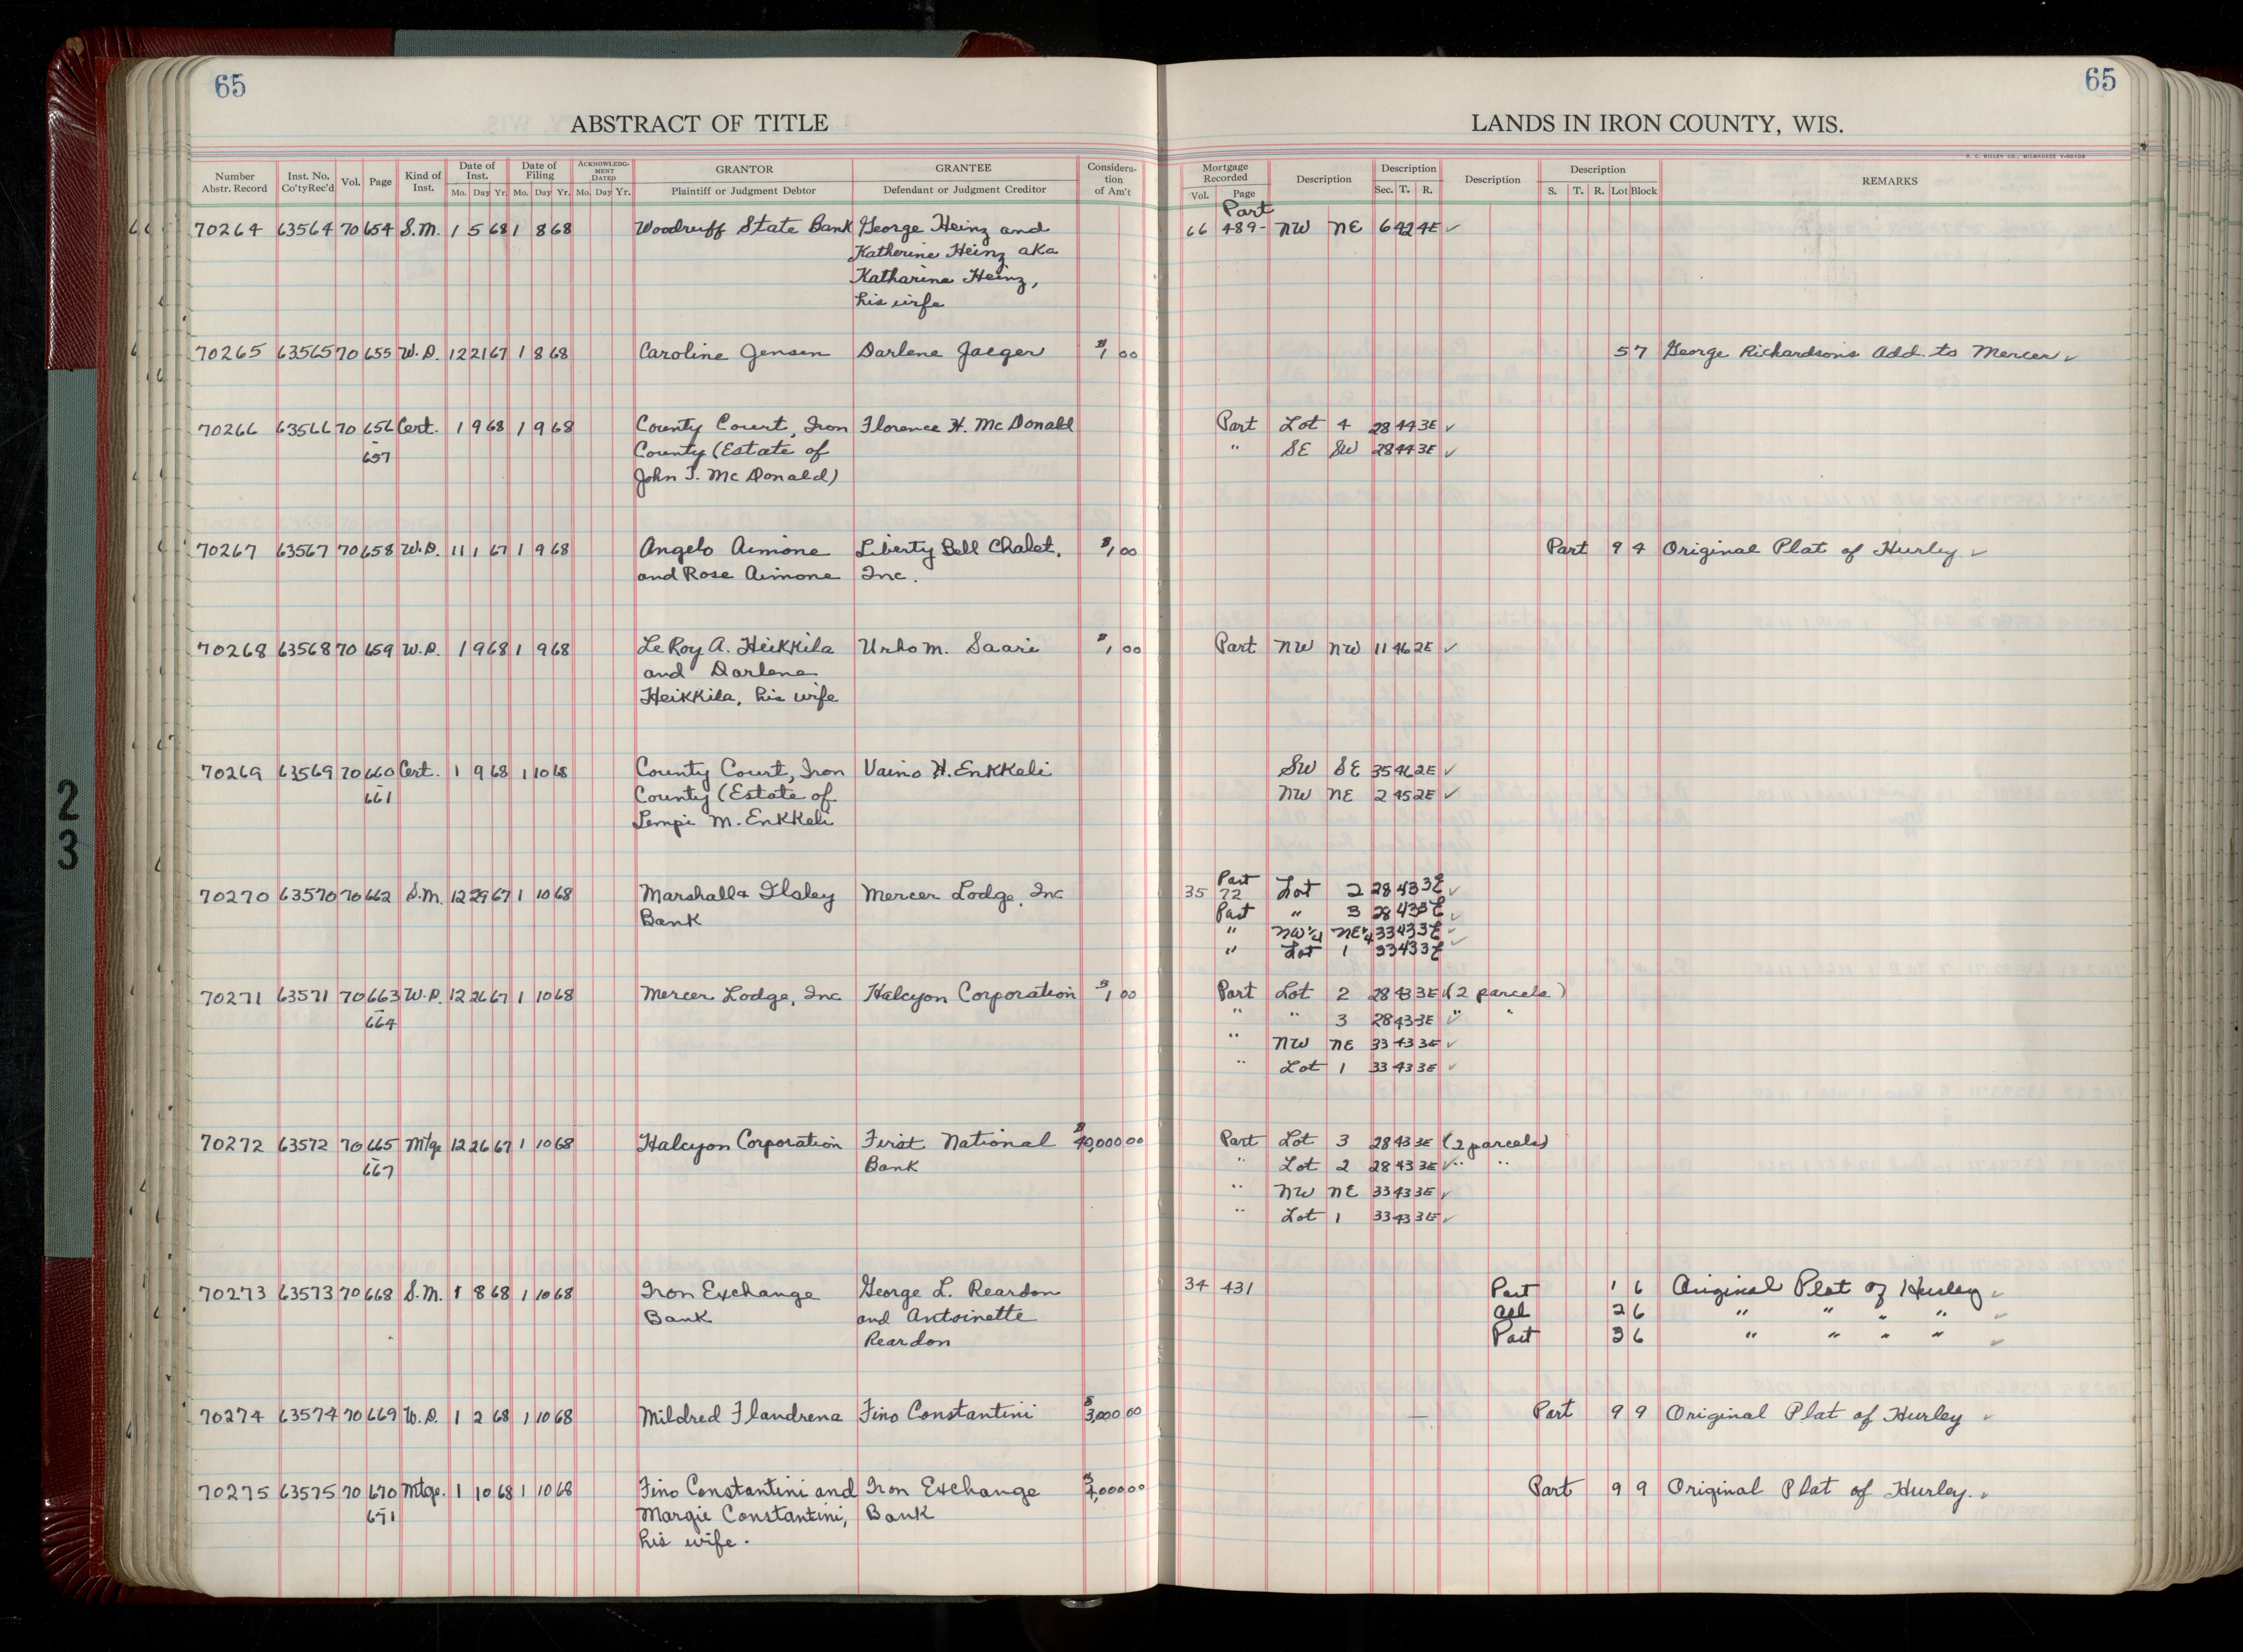 65
65
ABSTRACT OF TITLE
LANDS IN IRON COUNTY, WIS.
H. C. MILLER CO., MILWAUKEE
Number Abstr. Record Inst. No. Co'ty Rec'd Vol. Page Kind of Inst. Date of Inst. Mo. Day Yr. Date of Filing Mo. Day Yr. ACKNOWLEDGMENT DATED Mo. Day Yr. GRANTOR Plaintiff or Judgment Debtor GRANTEE Defendant or Judgment Creditor Consideration of Am't
Mortgage Recorded Vol. Page Description Description Sec. T. R. Description Description S. T. R. Lot Block REMARKS
Part
70264 63564 70 654 S.M. 1 5 68 1 8 68 Woodruff State Bank George Heinz and 66 489- NW NE 6 42 4E ✓
Katherine Heinz aka
Katharine Heinz,
his wife
70265 63565 70 655 W.D. 12 21 67 1 8 68 Caroline Jensen Darlene Jaeger $1 00 5 7 George Richardson's Add. to Mercer ✓
70266 63566 70 656 Cert. 1 9 68 1 9 68 County Court, Iron Florence H. McDonald Part Lot 4 28 44 3E ✓
- 657 County (Estate of " SE SW 28 44 3E ✓
John J. McDonald)
70267 63567 70 658 W.D. 11 1 67 1 9 68 Angelo Aimone Liberty Bell Chalet, $1 00 Part 9 4 Original Plat of Hurley ✓
and Rose Aimone Inc.
70268 63568 70 659 W.D. 1 9 68 1 9 68 LeRoy A. Heikkila Urho M. Saari $1 00 Part NW NW 11 46 2E ✓
and Darlene
Heikkila, his wife
70269 63569 70 660 Cert. 1 9 68 1 10 68 County Court, Iron Vaino H. Enkkeli SW SE 35 46 2E ✓
- 661 County (Estate of NW NE 2 45 2E ✓
Lempi M. Enkkeli
Part
70270 63570 70 662 S.M. 12 29 67 1 10 68 Marshall & Ilsley Mercer Lodge, Inc 35 72 Lot 2 28 43 3E ✓
Bank Part " 3 28 43 3E ✓
" NW¼ NE¼ 33 43 3E ✓
" Lot 1 33 43 3E ✓
70271 63571 70 663 W.D. 12 26 67 1 10 68 Mercer Lodge, Inc Halcyon Corporation $1 00 Part Lot 2 28 43 3E ✓ (2 parcels)
- 664 " " 3 28 43 3E ✓ " "
" NW NE 33 43 3E ✓
" Lot 1 33 43 3E ✓
70272 63572 70 665 Mtge 12 26 67 1 10 68 Halcyon Corporation First National $40,000 00 Part Lot 3 28 43 3E (2 parcels)
- 667 Bank " Lot 2 28 43 3E ✓ " "
" NW NE 33 43 3E ✓
" Lot 1 33 43 3E ✓
70273 63573 70 668 S.M. 1 8 68 1 10 68 Iron Exchange George L. Reardon 34 431 Part 1 6 Original Plat of Hurley ✓
Bank and Antoinette All 2 6 " " " " ✓
Reardon Part 3 6 " " " " ✓
70274 63574 70 669 W.D. 1 2 68 1 10 68 Mildred Flandrena Fino Constantini $3,000 00 Part 9 9 Original Plat of Hurley ✓
70275 63575 70 670 Mtge. 1 10 68 1 10 68 Fino Constantini and Iron Exchange $4,000 00 Part 9 9 Original Plat of Hurley. ✓
- 671 Margie Constantini, Bank
his wife.
2
3